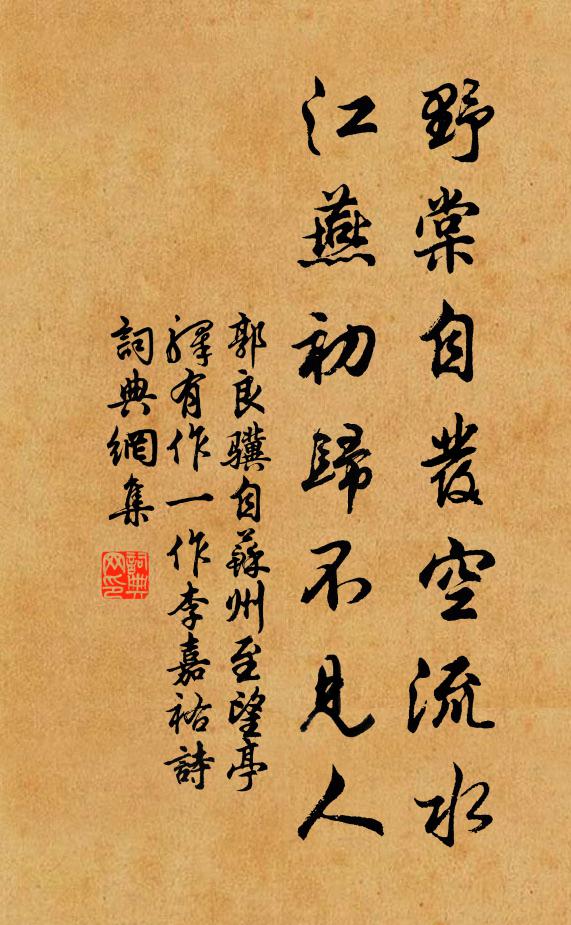 野棠自發空流水
江燕初歸不見人
郭良驥自蘇州至望亭
驛有作一作李嘉祐詩
詞典網集
詞典
网印